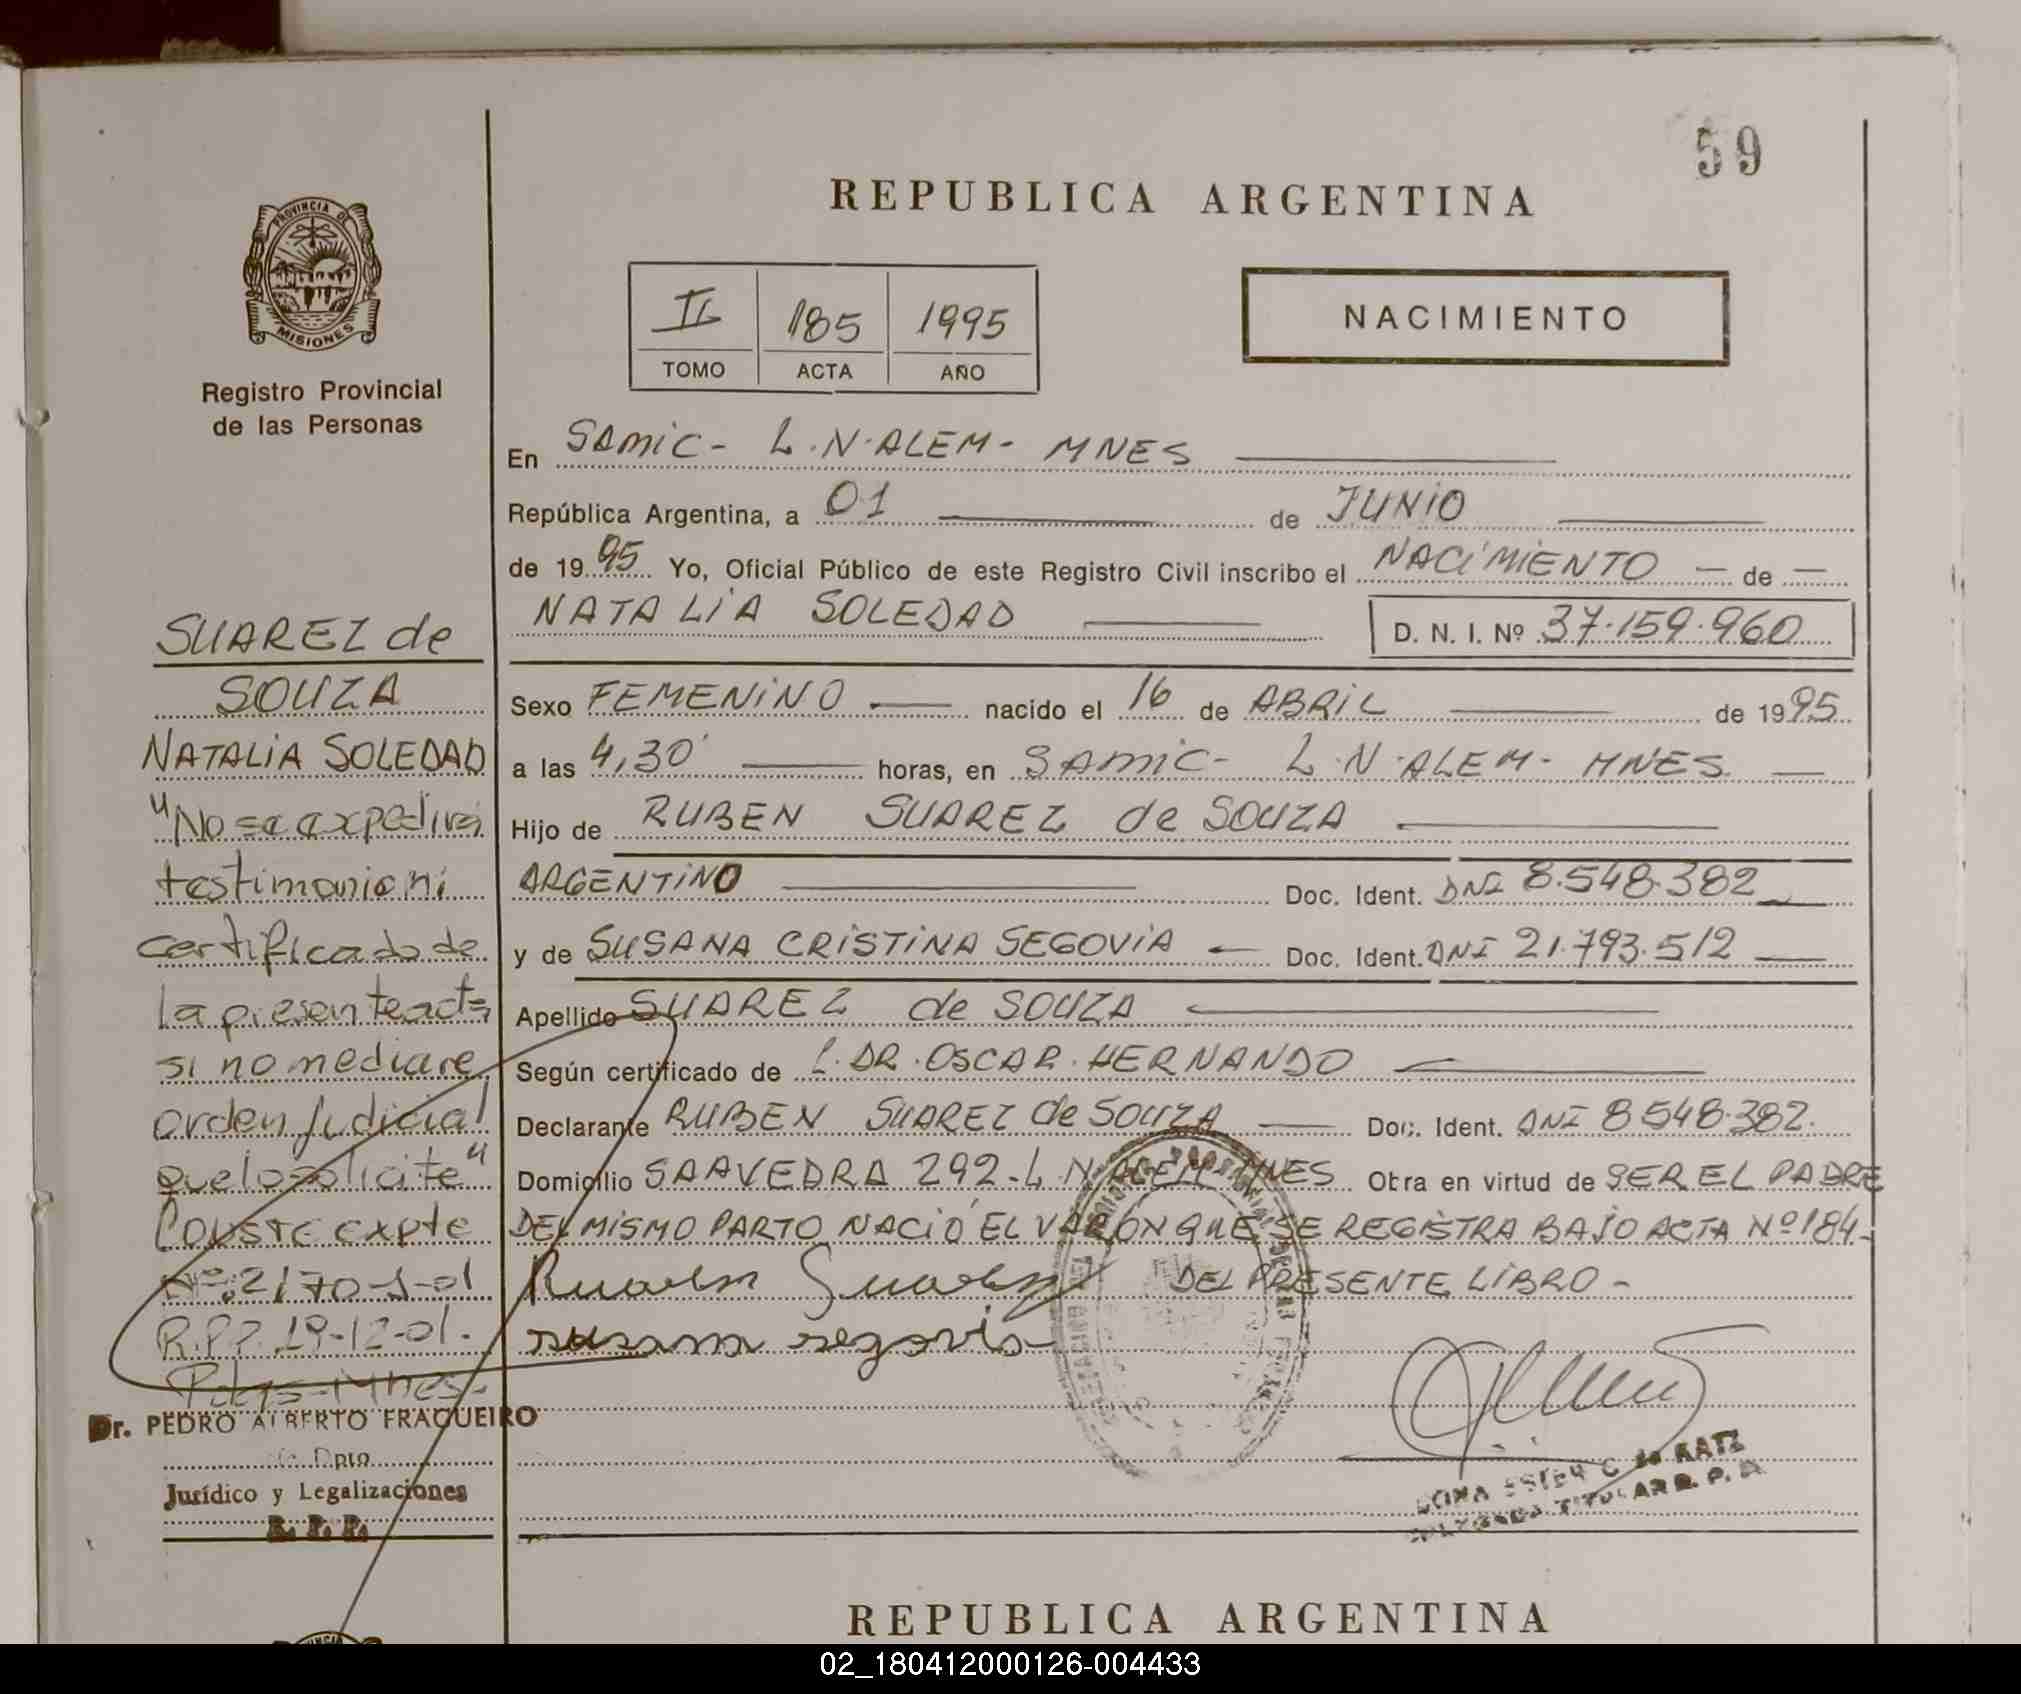 59
REPUBLICA ARGENTINA
PROVINCIA DE
MISIONES
Registro Provincial
de las Personas
II 185 1995
TOMO ACTA AÑO
NACIMIENTO
En SAMIC- L.N.ALEM- MNES
República Argentina, a 01 de JUNIO
de 1995 Yo, Oficial Público de este Registro Civil inscribo el NACIMIENTO de
NATALIA SOLEDAD D. N. I. Nº 37.159.960
Sexo FEMENINO nacido el 16 de ABRIL de 1995
a las 4,30 horas, en SAMIC- L.N.ALEM- MNES
Hijo de RUBEN SUAREZ de SOUZA
ARGENTINO Doc. Ident. DNI 8.548.382
y de SUSANA CRISTINA SEGOVIA Doc. Ident. DNI 21.793.512
Apellido SUAREZ de SOUZA
Según certificado de DR. OSCAR HERNANDO
Declarante RUBEN SUAREZ de SOUZA Doc. Ident. DNI 8548.382.
Domicilio SAAVEDRA 292-L.N.ALEM-MNES Otra en virtud de SER EL PADRE
DEL MISMO PARTO NACIÓ EL VARON QUE SE REGISTRA BAJO ACTA Nº 184-
DEL PRESENTE LIBRO-
susana segovia
SUAREZ de
SOUZA
NATALIA SOLEDAD
"No se expedira
testimonio ni
certificado de
la presente acta
si no mediare
orden judicial
que lo solicite"
Conste expte
Nº:2170-S-01
R.P.P. 19-12-01.
Pdas-Mnes-
Dr. PEDRO ALBERTO FRAGUEIRO
Dpto
Jurídico y Legalizaciones
R. P. P.
ESTER C de KATZ
TITULAR R. P. P.
REPUBLICA ARGENTINA
02_180412000126-004433